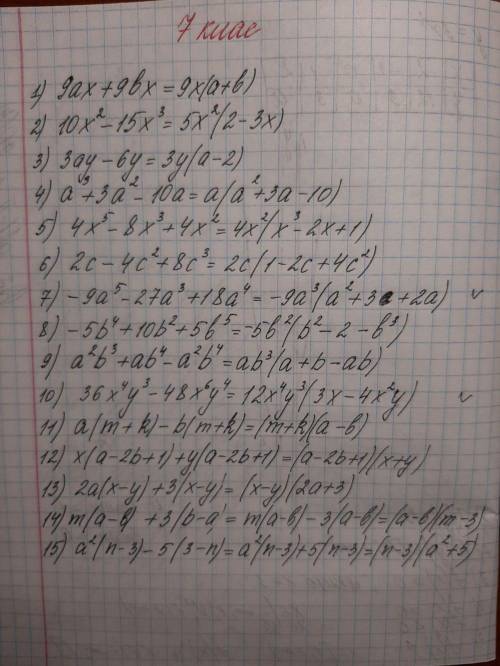 7 клас
1) 9ax+9bx=9x(a+b)
2) 10x²-15x³=5x²(2-3x)
3) 3ay-6y=3y(a-2)
4) a³+3a²-10a=a(a²+3a-10)
5) 4x⁵-8x³+4x²=4x²(x³-2x+1)
6) 2c-4c²+8c³=2c(1-2c+4c²)
7) -9a⁵-27a³+18a⁴=-9a³(a²+3a+2a) ✓
8) -5b⁴+10b²+5b⁵=-5b²(b²-2-b³)
9) a²b³+ab⁴-a²b⁴=ab³(a+b-ab)
10) 36x⁴y³-48x⁶y⁴=12x⁴y³(3x-4x²y) ✓
11) a(m+k)-b(m+k)=(m+k)(a-b)
12) x(a-2b+1)+y(a-2b+1)=(a-2b+1)(x+y)
13) 2a(x-y)+3(x-y)=(x-y)(2a+3)
14) m(a-b)+3(b-a)=m(a-b)-3(a-b)=(a-b)(m-3)
15) a²(n-3)-5(3-n)=a²(n-3)+5(n-3)=(n-3)(a²+5)